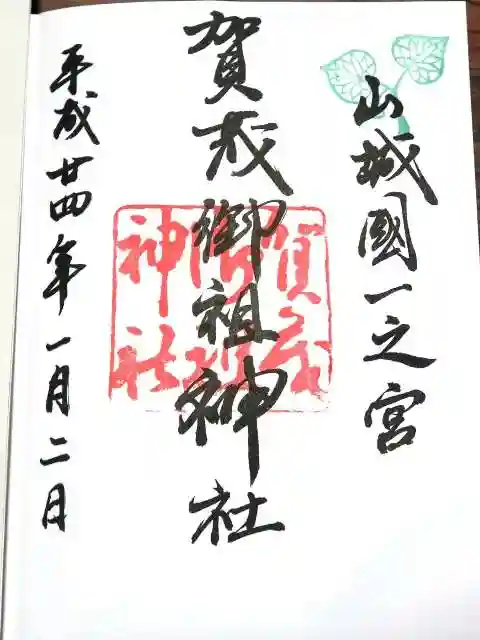 山城國一之宮
賀茂御祖神社
平成廿四年一月二日
賀茂御祖神社